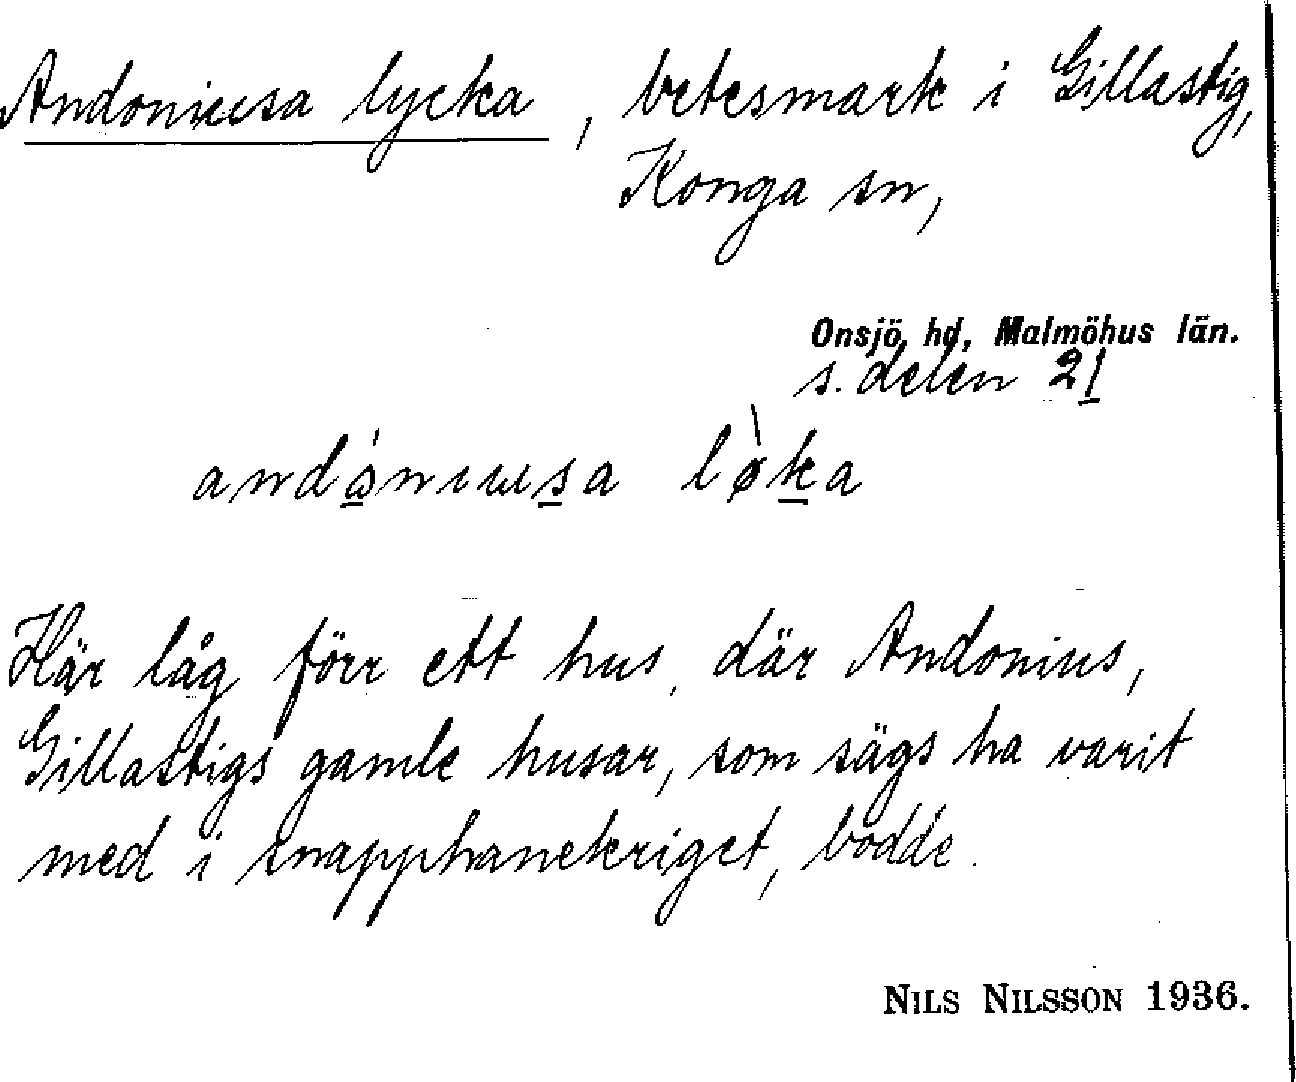 Andoniusa lycka, betesmark i Gillastig,
Konga sn,
Onsjö hd, Malmöhus län.
s. delen 21
andóniusa lø̀ka
Här låg förr ett hus, där Andonius,
Gillastigs gamle husar, som sägs ha varit
med i snapphanekriget, bodde.
NILS NILSSON 1936.